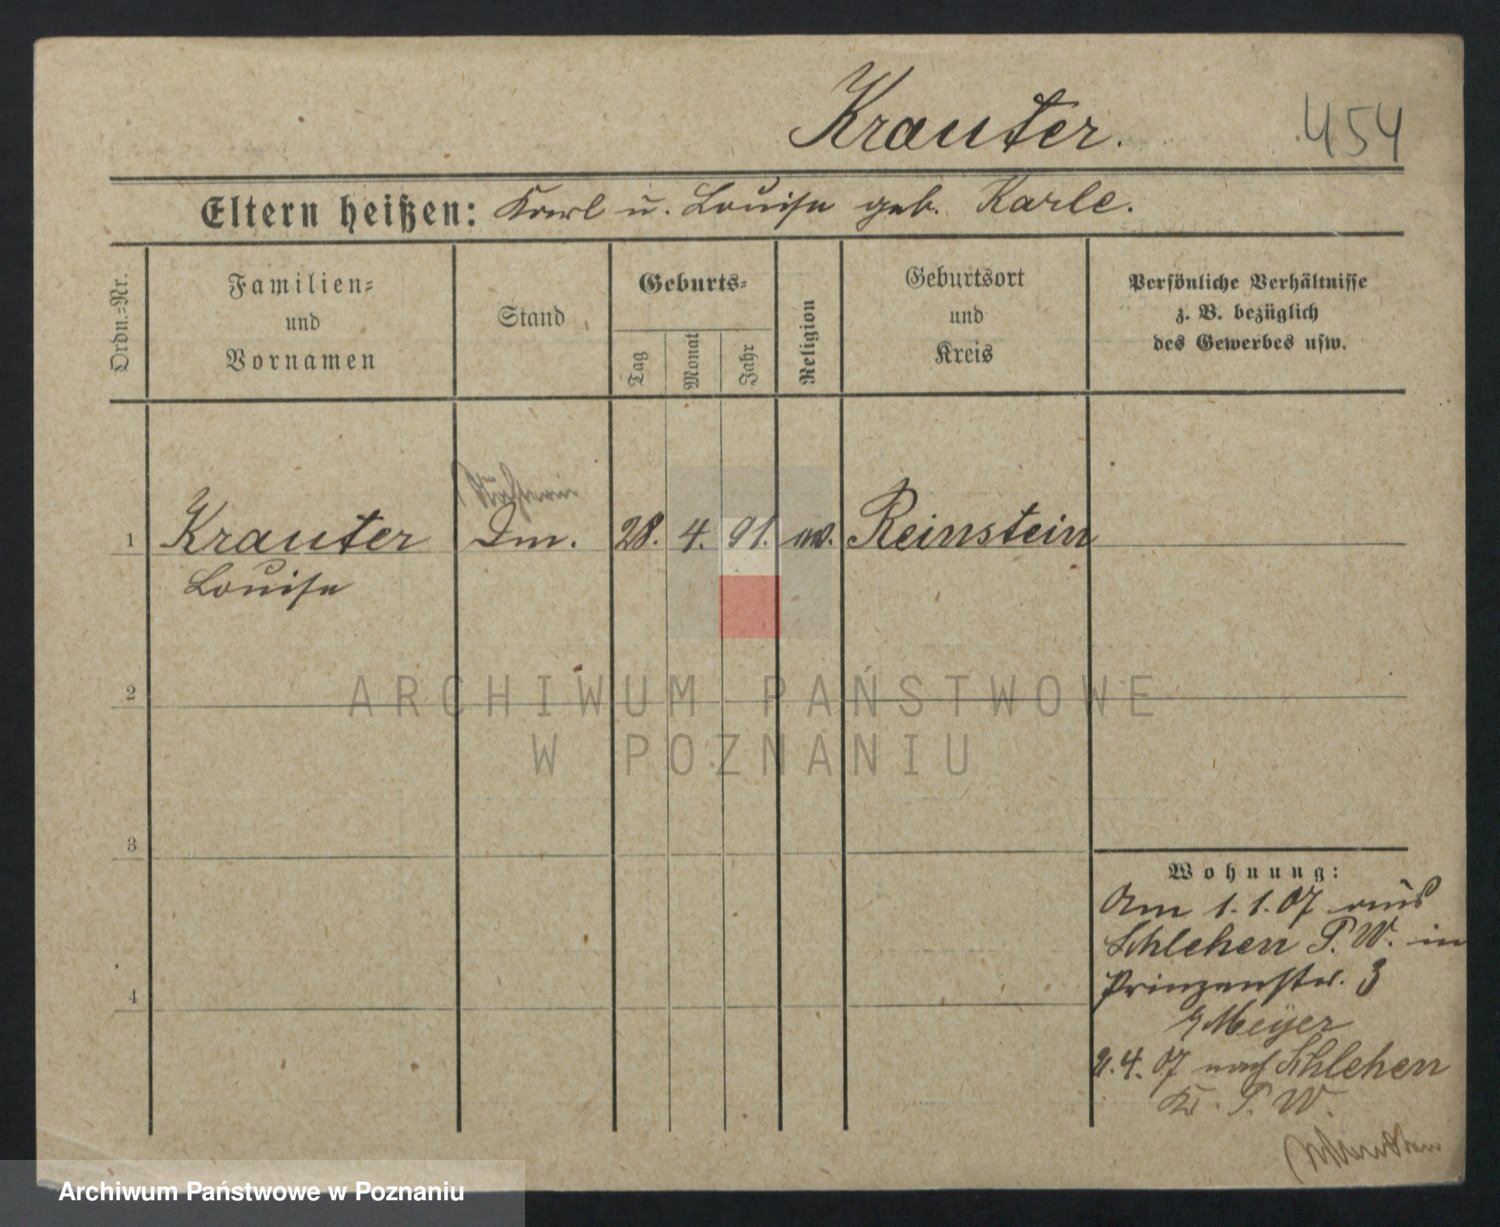 Krauter.
454
Eltern heißen: Karl u. Louise geb. Karle.
Ordn.-Nr.
Familien-
und
Vornamen
Stand
Geburts-
Tag
Monat
Jahr
Religion
Geburtsort
und
Kreis
Persönliche Verhältnisse
z. B. bezüglich
des Gewerbes usw.
1 Krauter Dm. 28. 4. 91. ev. Reinstein
Louise
2
3
4
Wohnung:
Am 1.1.07 aus
Schlehen P. W. in
Prinzenstr. 3
Meyer
4. 07 nach Schlehen
Kr. P. W.
ARCHIWUM PAŃSTWOWE
W POZNANIU
Archiwum Państwowe w Poznaniu